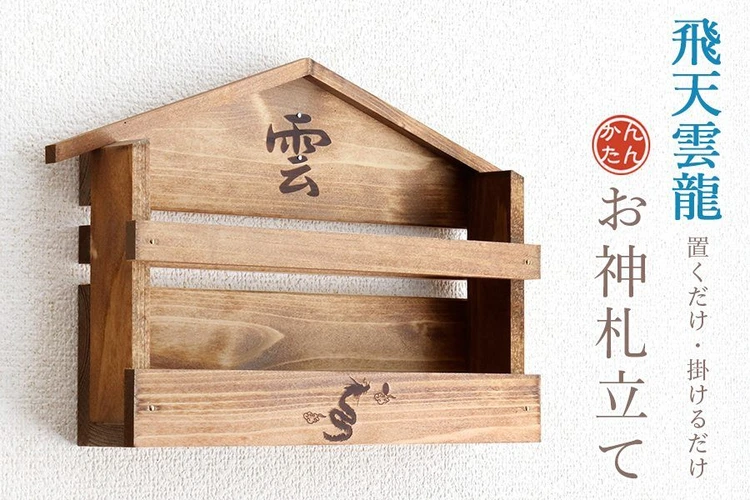 飛天雲龍
置くだけ・掛けるだけ
かん
たん
お神札立て
雲